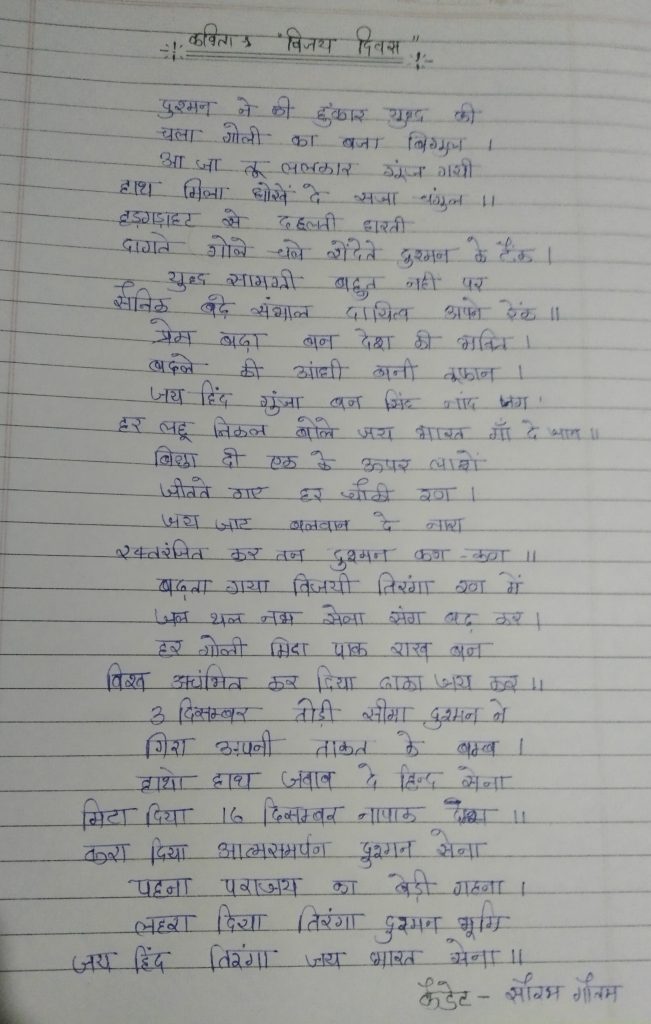 कविता "विजय दिवस"
दुश्मन ने की हुंकार युद्ध की
चला गोली का बजा बिगुल ।
आ जा तू ललकार गूंज गयी
हाथ मिला धोखें दे सजा चंगुल ॥
हड़गड़ाहट से दहलती धरती
दागते गोले चले रोंदते दुश्मन के टैंक ।
युद्ध सामग्री बहुत नही पर
सैनिक बढे संभाल दायित्व अपने रैंक ॥
प्रेम बढ़ा बन देश की भक्ति ।
बदले की आंधी बनी तूफान ।
जय हिंद गुंजा बन सिंह नांद
हर लहू निकल बोले जय भारत माँ दे ॥
बिछा दी एक के ऊपर लाशें
जीतते गए हर चौकी रण ।
जय जाट बलवान दे नारा
रक्तरंजित कर तन दुश्मन कण-कण ॥
बढ़ता गया विजयी तिरंगा रण में
जल थल नभ सेना संग बढ़ कर ।
हर गोली मिटा पाक राख बन
विश्व अचंभित कर दिया ढाका जय कर ॥
3 दिसम्बर तोड़ी सीमा दुश्मन ने
गिरा अपनी ताकत के बम्ब ।
हाथो हाथ जवाब दे हिन्द सेना
मिटा दिया 16 दिसम्बर नापाक ॥
करा दिया आत्मसमर्पन दुश्मन सेना
पहना पराजय का बेड़ी गहना ।
लहरा दिया तिरंगा दुश्मन भूमि
जय हिंद तिरंगा जय भारत सेना ॥
कैडेट - सौरभ गौतम